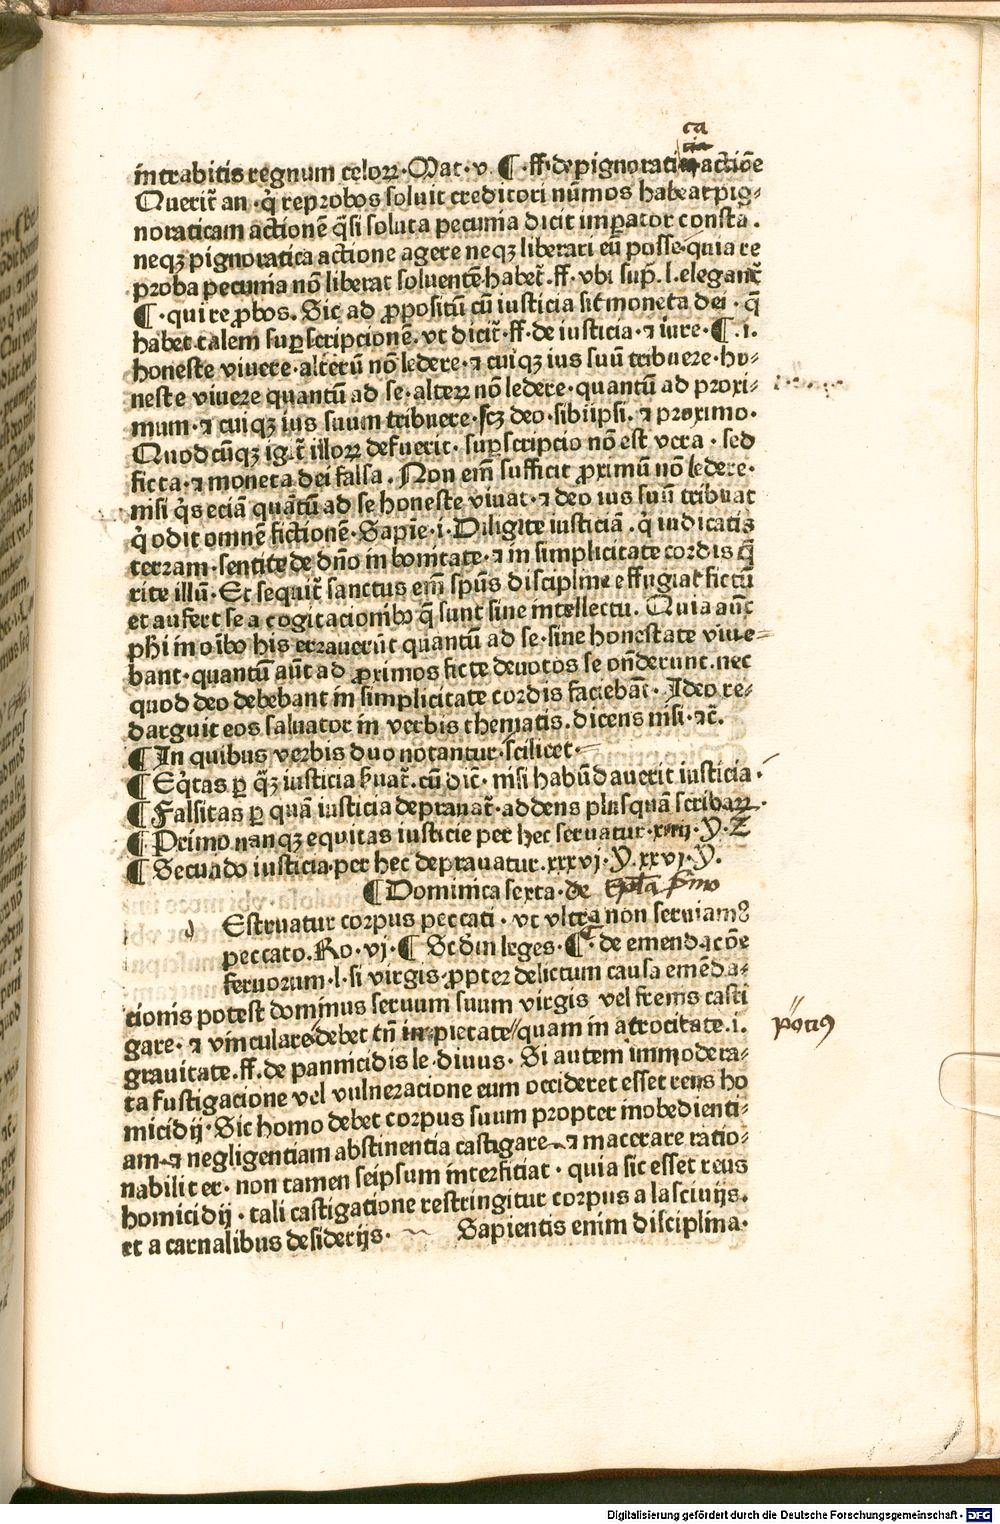 ca
intrabitis regnum celoꝝ · Mat · v · ¶ · ff · de pignorati actiōe
Querit̄ an · q̇ reprobos soluit creditori nūmos habeat pig⸗
noraticam actionē q̄si soluta pecunia dicit imꝑator consta .
neqꝫ pignoratica actione agere neqꝫ liberari eū posse · quia re
proba pecunia nō liberat soluentē · habet̄ · ff · vbi sup̄ · l · elegant̄
¶ · qui reꝓbos . Sic ad ꝓpositū cū iusticia sit moneta dei · q̄
habet talem suꝑscripcionē · vt dicit̄ · ff · de iusticia · ⁊ iure · ¶ . i .
honeste viuere · alterū nō ledere · ⁊ cuiqꝫ ius suū tribuere · ho⸗
neste viuere quantū ad se · alteꝝ nō ledere · quantū ad proxi⸗
mum · ⁊ cuiqꝫ ius suum tribuere · scꝫ deo · sibiipsi · ⁊ proximo ·
Quodcūqꝫ igit̄ illoꝝ defuerit · suꝑscripcio nō est vera · sed
ficta · ⁊ moneta dei falsa . Non em̄ sufficit ꝓximū nō ledere ·
nisi q̇s eciā quātū ad se honeste viuat · ⁊ deo ius suū tribuat
q̇ odit omnē fictionē · Sapiē · i · Diligite iusticiā · q̇ iudicatis
terram · sentite de dn̄o in bonitate · ⁊ in simplicitate cordis q̄
rite illū · Et sequit̄ sanctus em̄ sp̄us discipline effugiat fictū
et aufert se a cogitacionibꝰ q̄ sunt sine intellectu . Quia aūt
ph̄i in oībꝰ his errauerūt quantū ad se · sine honestate viue⸗
bant · quantū aūt ad ꝓximos ficte deuotos se on̄derunt . nec
quod deo debebant in simplicitate cordis faciebāt · Ideo re⸗
darguit eos saluator in verbis thematis . dicens nisi · ⁊c̄ .
¶ In quibus verbis duo notantur · scilicet ·
¶ Eq̇tas ꝑ q̄ꝫ iusticia ẜuat̄ . cū dic̄ · nisi habūdauerit iusticia ·
¶ Falsitas ꝑ quā iusticia deprauat̄ · addens plusquā scribaꝝ ·
¶ Primo nanqꝫ equitas iusticie per hec seruatur ·
¶ Secundo iusticia per hec deprauatur . xxxvj · Y . xxvj · Y .
¶ Dominica sexta · de
Estruatur corpus peccati · vt vltra non seruiamꝰ
peccato . Ro · vj · ¶ Scd̄m leges · ¶ · de emendacōe
seruorum · l · si virgis · ꝓpter delictum causa emēda⸗
tionis potest dominus seruum suum virgis vel frenis casti
gare · ⁊ vinculare debet tn̄ in pietate quam in atrocitate . i .
potius
grauitate . ff . de parricidis le · diuus · Si autem immodera⸗
ta fustigacione vel vulneracione eum occideret esset reus ho
micidij · Sic homo debet corpus suum propter inobedienti⸗
am · ⁊ negligentiam abstinentia castigare · ⁊ macerare ratio⸗
nabiliter · non tamen seipsum interficiat · quia sic esset reus
homicidij · tali castigatione restringitur corpus a lasciuijs .
et a carnalibus desiderijs · Sapientis enim disciplina ·
Digitalisierung gefördert durch die Deutsche Forschungsgemeinschaft · DFG